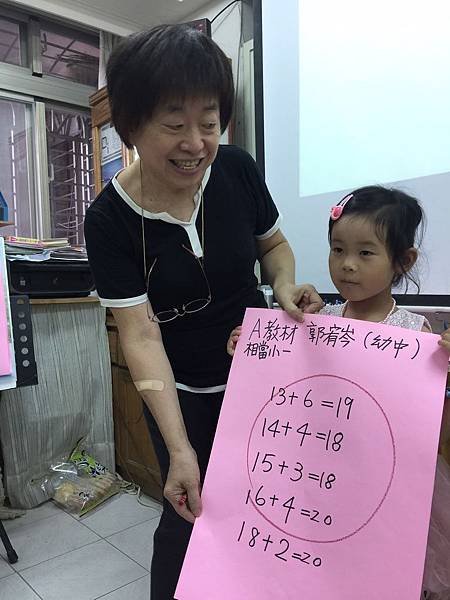 A教材 郭宥岑(幼中)
相當小一
13+6=19
14+4=18
15+3=18
16+4=20
18+2=20